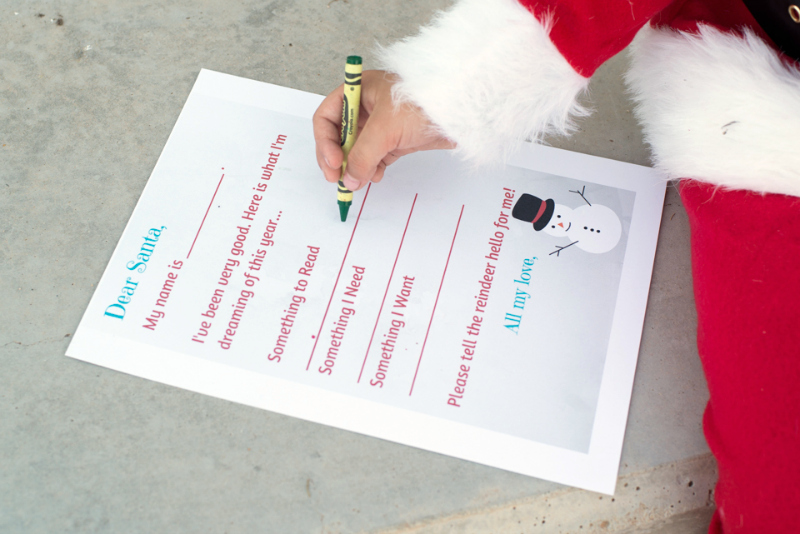 Dear Santa,
My name is
I've been very good. Here is what I'm
dreaming of this year...
Something to Read
Something I Need
Something I Want
Please tell the reindeer hello for me!
All my love,